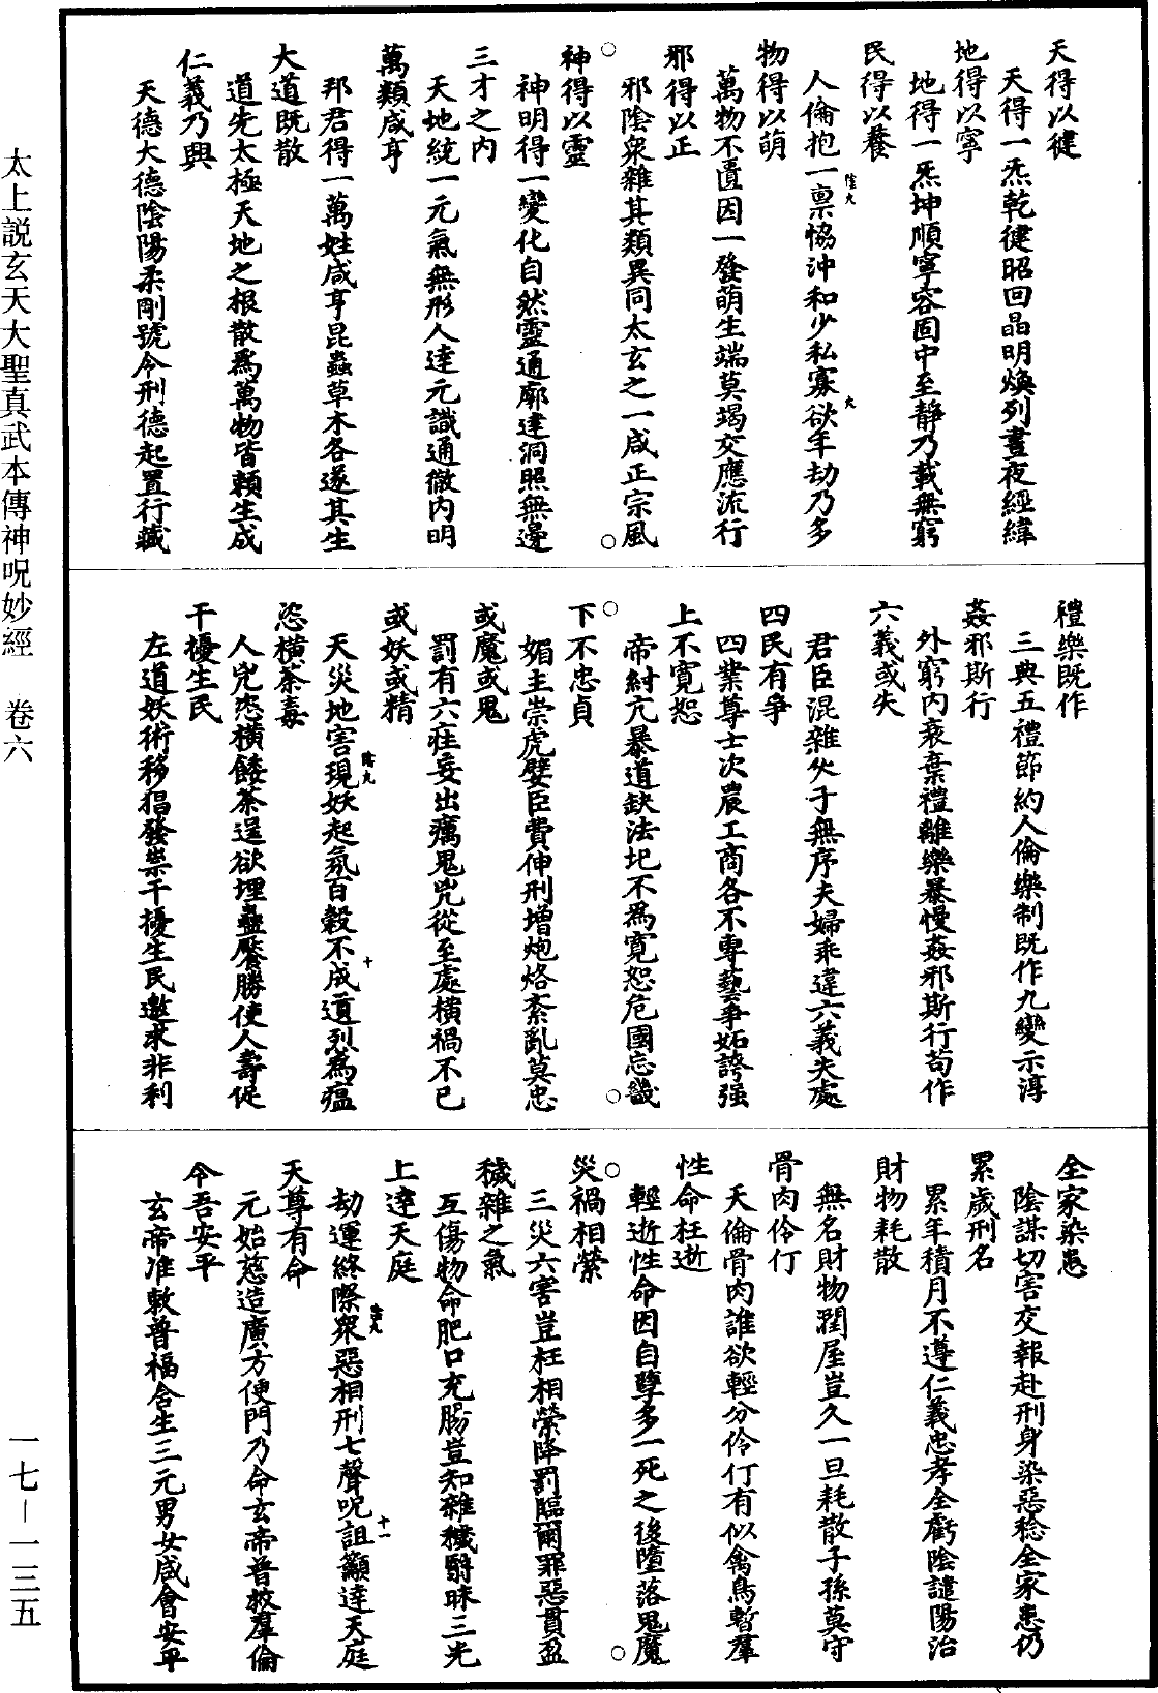 天得以健
天得一炁乾健昭回晶明煥列晝夜經緯
地得以寧
地得一炁坤順寧容固中至靜乃載無窮
民得以養
人倫抱一禀恊沖和少私寡欲年劫乃多
物得以萌
萬物不匱因一發萌生端莫竭交應流行
邪得以正
邪陰衆雜其類異同太玄之一咸正宗風
神得以靈
神明得一變化自然靈通廓達洞照無邊
三才之内
天地統一元氣無形人達元識通徹内明
萬類咸亨
邦君得一萬姓咸亨昆蟲草木各遂其生
大道既散
道先太極天地之根散爲萬物皆賴生成
仁義乃興
天德大德陰陽柔剛號令刑德起置行藏
禮樂既作
三典五禮節約人倫樂制既作九變示淳
姦邪斯行
外窮内衰棄禮離樂暴慢姦邪斯行苟作
六義或失
君臣混雜父子無序夫婦乖違六義失處
四民有爭
四業尊士次農工商各不專藝爭妬誇强
上不寬恕
帝紂亢暴道缺法圮不爲寬恕危國忘畿
下不忠貞
媚主崇虎嬖臣費仲刑增炮烙紊亂莫忠
或魔或鬼
罰有六疰妄出癘鬼兇從至處橫禍不已
或妖或精
天災地害現妖起氛百穀不成道烈爲瘟
恣橫荼毒
人兇恣橫餧荼逞欲埋蠱厭勝使人壽促
干擾生民
左道妖術移猖發祟干擾生民邀求非利
全家染患
陰謀切害交報赴刑身染惡稔全家患仍
累歲刑名
累年積月不遵仁義忠孝全虧陰譴陽治
財物耗散
無名財物潤屋豈久一旦耗散子孫莫守
骨肉伶仃
天倫骨肉誰欲輕分伶仃有似禽鳥暫羣
性命枉逝
輕逝性命因自孽多一死之後墮落鬼魔
災禍相縈
三災六害豈枉相縈降罰臨爾罪惡貫盈
穢雜之氣
互傷物命肥口充腸豈知雜穢翳昧三光
上達天庭
劫運終際衆惡相刑七聲呪詛籲達天庭
天尊有命
元始慈造廣方便門乃命玄帝普救羣倫
令吾安平
玄帝准敕普福含生三元男女咸會安平
太上説玄天大聖真武本傳神呪妙經 卷六
一七－一三五